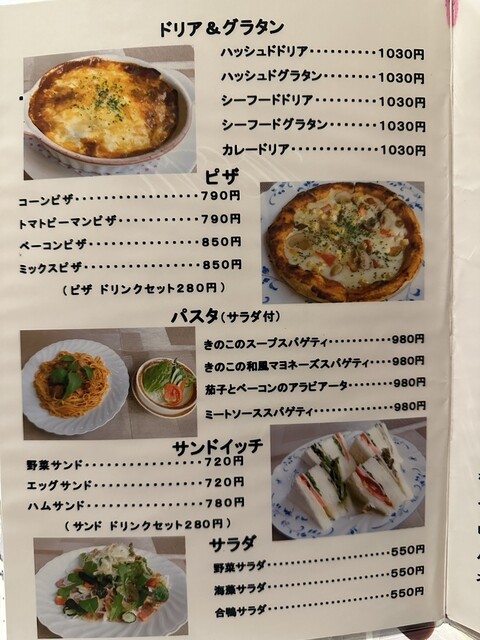 ドリア＆グラタン
ハッシュドドリア・・・・・・・・・・1030円
ハッシュドグラタン・・・・・・・・1030円
シーフードドリア・・・・・・・・・1030円
シーフードグラタン・・・・・・・・1030円
カレードリア・・・・・・・・・・・・1030円
ピザ
コーンピザ・・・・・・・・・・・・・・・・・・790円
トマトピーマンピザ・・・・・・・・・・・・790円
ベーコンピザ・・・・・・・・・・・・・・・・850円
ミックスピザ・・・・・・・・・・・・・・・・850円
（ピザ ドリンクセット280円）
パスタ（サラダ付）
きのこのスープスパゲティ・・・・・・・980円
きのこの和風マヨネーズスパゲティ・・・・980円
茄子とベーコンのアラビアータ・・・・・980円
ミートソーススパゲティ・・・・・・・・・980円
サンドイッチ
野菜サンド・・・・・・・・・・・・・・・・・・720円
エッグサンド・・・・・・・・・・・・・・・・720円
ハムサンド・・・・・・・・・・・・・・・・・・780円
（サンド ドリンクセット280円）
サラダ
野菜サラダ・・・・・・・・・・・・・・・・550円
海藻サラダ・・・・・・・・・・・・・・・・550円
合鴨サラダ・・・・・・・・・・・・・・・・550円